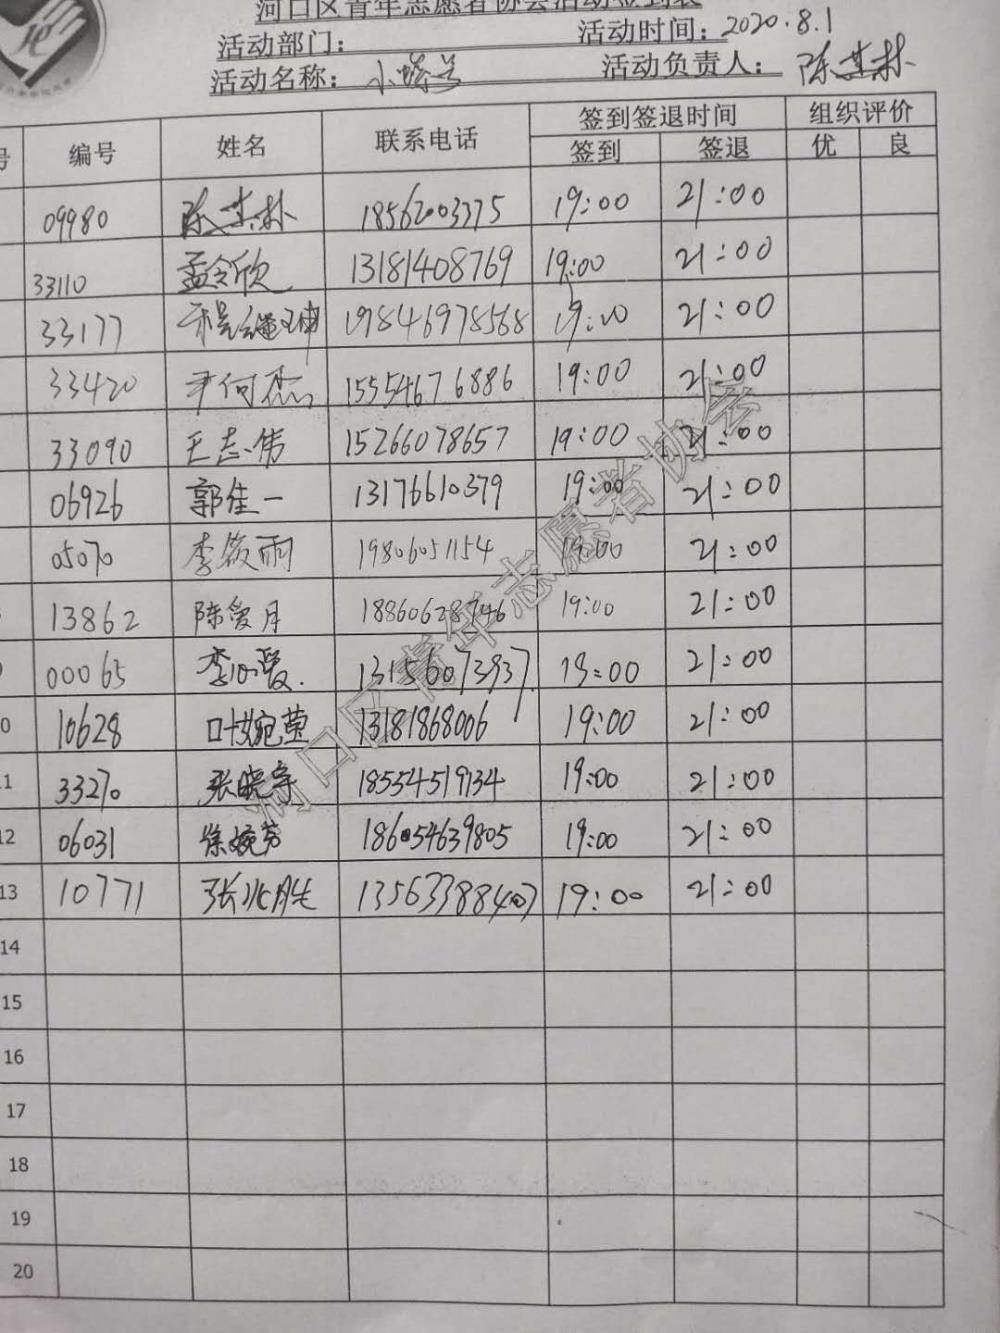 河口区青年志愿者协会活动签到表
活动部门： 活动时间：2020.8.1
活动名称： 活动负责人：
号 编号 姓名 联系电话 签到签退时间 组织评价
签到 签退 优 良
09980 18562003775 19:00 21:00
33110 孟令欣 13181408769 19:00 21:00
33177 19846978568 19:00 21:00
33420 尹何杰 15554676886 19:00 21:00
33090 王志伟 15266078657 19:00 21:00
06926 郭佳一 13176610379 19:00 21:00
05070 李筱雨 19806051154 19:00 21:00
13862 陈爱月 18860628746 19:00 21:00
00065 13156073937 19:00 21:00
10 10628 叶婉莹 13181868006 19:00 21:00
11 33270 张晓宇 18554519134 19:00 21:00
12 06031 徐婉芳 186054639805 19:00 21:00
13 10771 张兆胜 13563388407 19:00 21:00
14
15
16
17
18
19
20
河口区青年志愿者协会